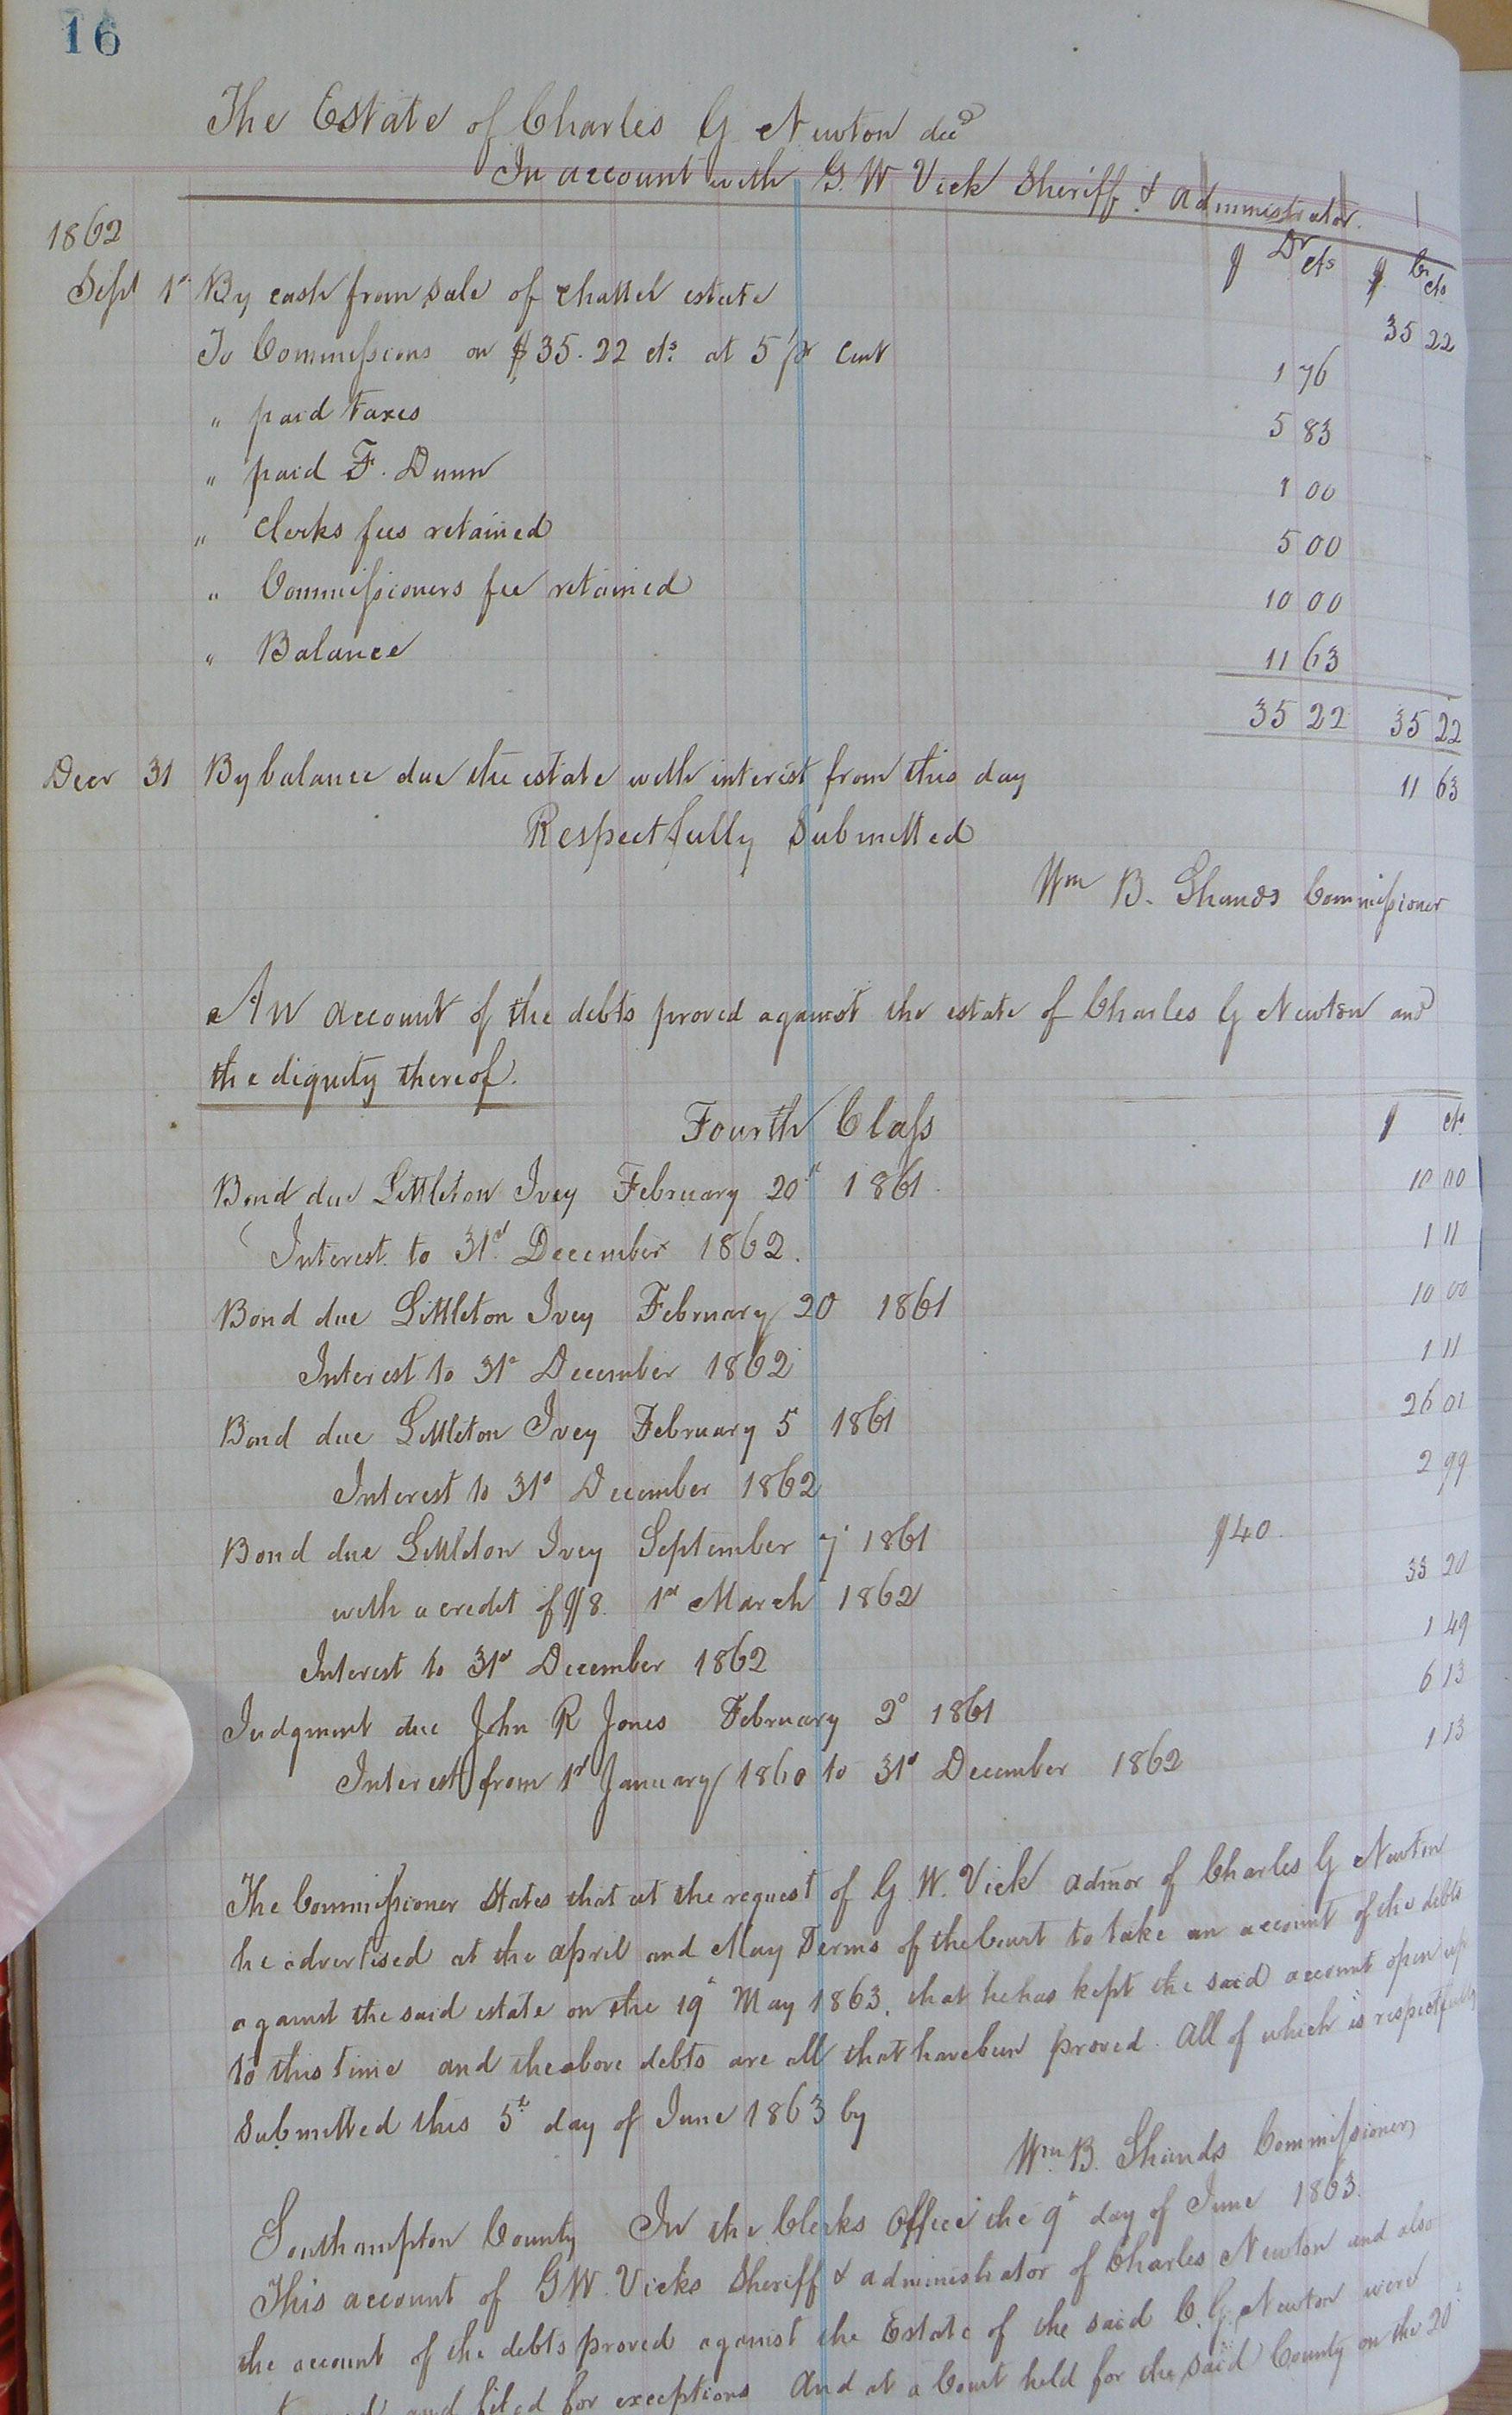 16
The Estate of Charles G Newton decd
In account with G. W Vick Sheriff & administrator.
1862
$ Dr cts $ Cr cts
Sept 1st By cash from sale of chattel estate 35 22
To Commissions on $35.22 cts at 5 pr cent 1 76
" paid taxes 5 83
" paid F. Dunn 1 00
" Clerks fees retained 5 00
" Commissioners fee retained 10 00
" Balance 11 63
35 22 35 22
Decr 31 By balance due the estate with interest from this day 11 63
Respectfully Submitted
Wm B. Shands Commissioner
An account of the debts proved against the estate of Charles G Newton and
the dignity thereof.
Fourth Class $ cts
Bond due Littleton Ivey February 20th 1861. 10 00
Interest to 31st December 1862. 1 11
Bond due Littleton Ivey February 20 1861 10 00
Interest to 31st December 1862 1 11
Bond due Littleton Ivey February 5 1861 26 01
Interest to 31st December 1862 2 99
Bond due Littleton Ivey September 7th 1861 $40.
with a credit of $8. 1st March 1862 33 20
Interest to 31st December 1862 1 49
Judgment due John R Jones February 2d 1861 6 13
Interest from 1st January 1860 to 31st December 1862 1 13
The Commissioner States that at the request of G. W. Vick admor of Charles G Newton
he advertised at the april and May Terms of the Court to take an account of the debts
against the said estate on the 19th May 1863, that he has kept the said account open up
to this time and the above debts are all that have been proved. All of which is respectfully
Submitted this 5th day of June 1863 by
Wm. B. Shands Commissioner
Southampton County In the Clerks Office the 9th day of June 1863.
This account of G W. Vicks Sheriff & administrator of Charles Newton and also
the account of the debts proved against the Estate of the said C. G. Newton were
and filed for exceptions And at a Court held for the said County on the 20th